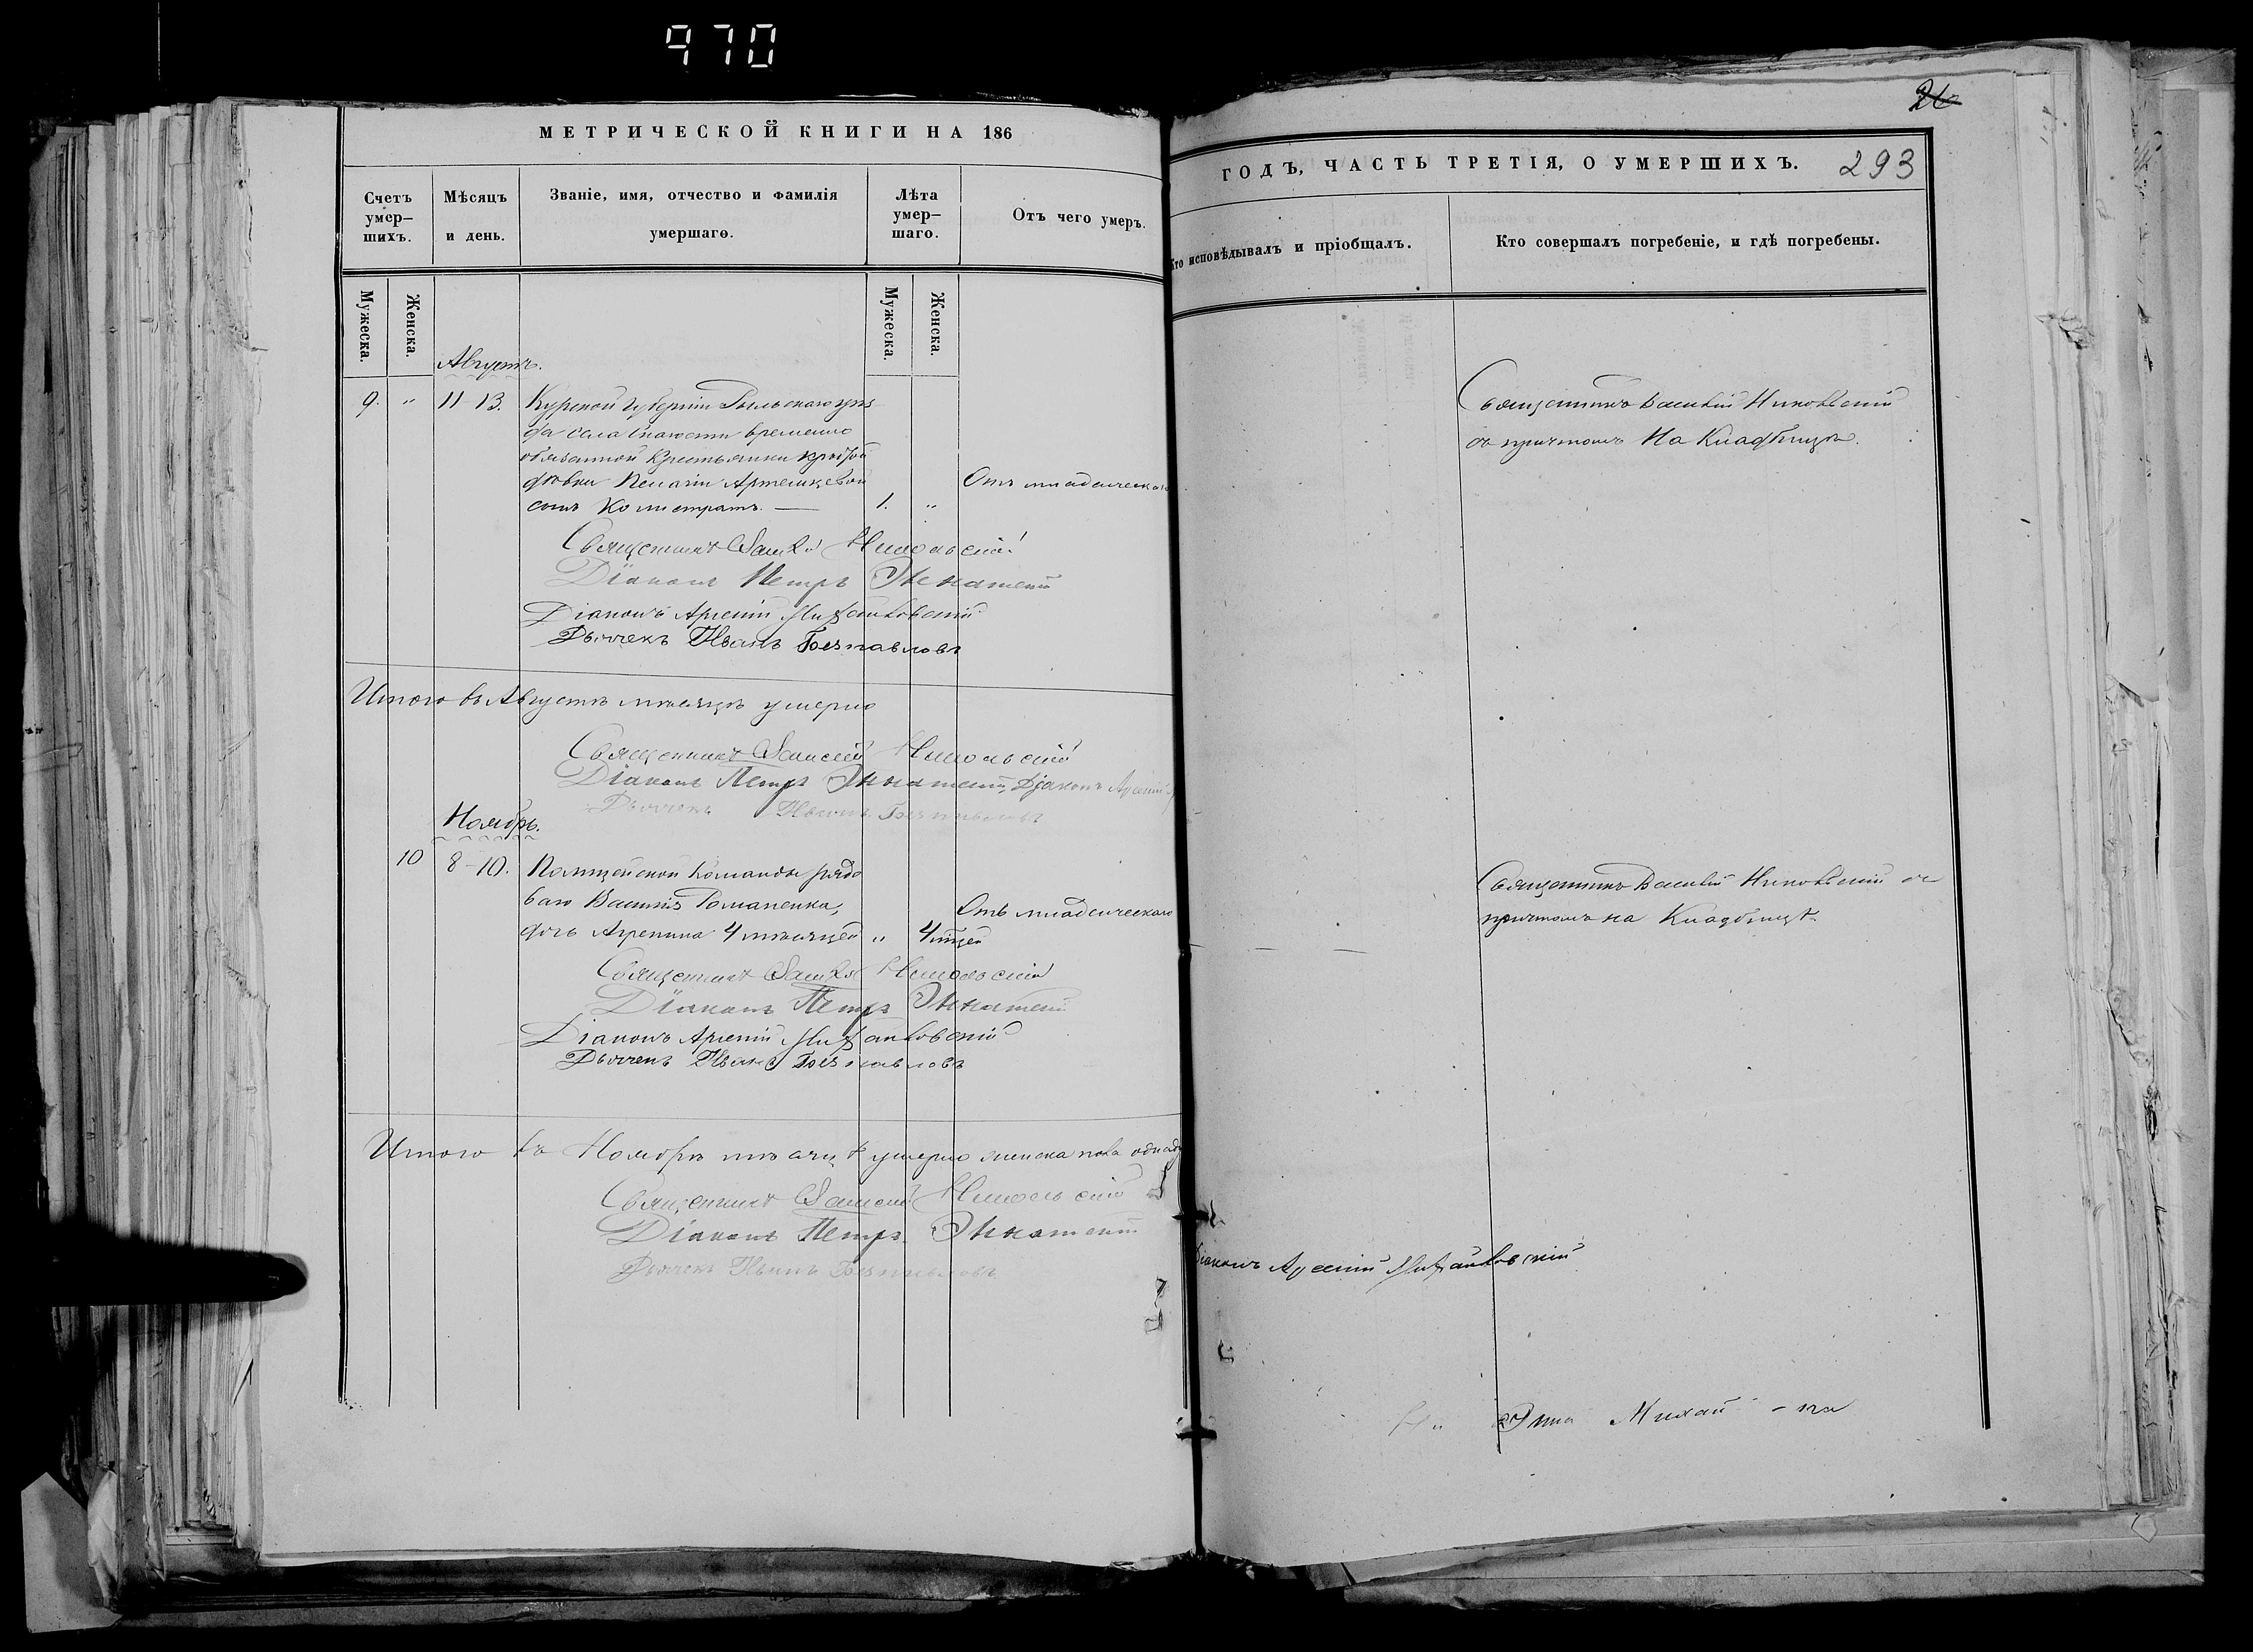 970
МЕТРИЧЕСКОЙ КНИГИ НА 186
Счетъ умер-
шихъ.
Мѣсяцъ
и день.
Званіе, имя, отчество и фамилія
умершаго.
Лѣта
умер-
шаго.
Отъ чего умеръ.
Мужеска.
Женска.
Мужеска.
Женска.
Августъ.
9. " 11 13. Курской Губерніи Рыльскаго уѣз
да села временно
обязанной Крестьянки
дѣвки Пелагіи
сынъ Калистратъ. 1. "
Отъ младенческаго
Священникъ Василій Никольскій
Діаконъ Петръ
Діаконъ Арсеній
Дьячекъ Иванъ Безпаловъ
Итого въ Августѣ мѣсяцѣ умерло
Священникъ Василій Никольскій
Діаконъ Петръ Діаконъ Арсеній
Дьячекъ Иванъ
Ноябрь.
10 8-10. Полицейской Команды рядо
ваго Василія Романенка,
дочь Агрепина 4 мѣсяцей " 4 мцей
Отъ младенческаго
Священникъ Василій Никольскій
Діаконъ Петръ
Діаконъ Арсеній
Дьячекъ Иванъ
Итого въ Ноябрѣ мѣсяцѣ умерло женска пола одна
Священникъ Василій Никольскій
Діаконъ Петръ
Дьячекъ Иванъ
ГОДЪ, ЧАСТЬ ТРЕТІЯ, О УМЕРШИХЪ. 293
Кто исповѣдывалъ и пріобщалъ.
Кто совершалъ погребеніе, и гдѣ погребены.
Священникъ Василій Никольскій
съ причтомъ На Кладбищѣ.
Священникъ Василій Никольскій съ
причтомъ на Кладбищѣ.
Діаконъ Арсеній